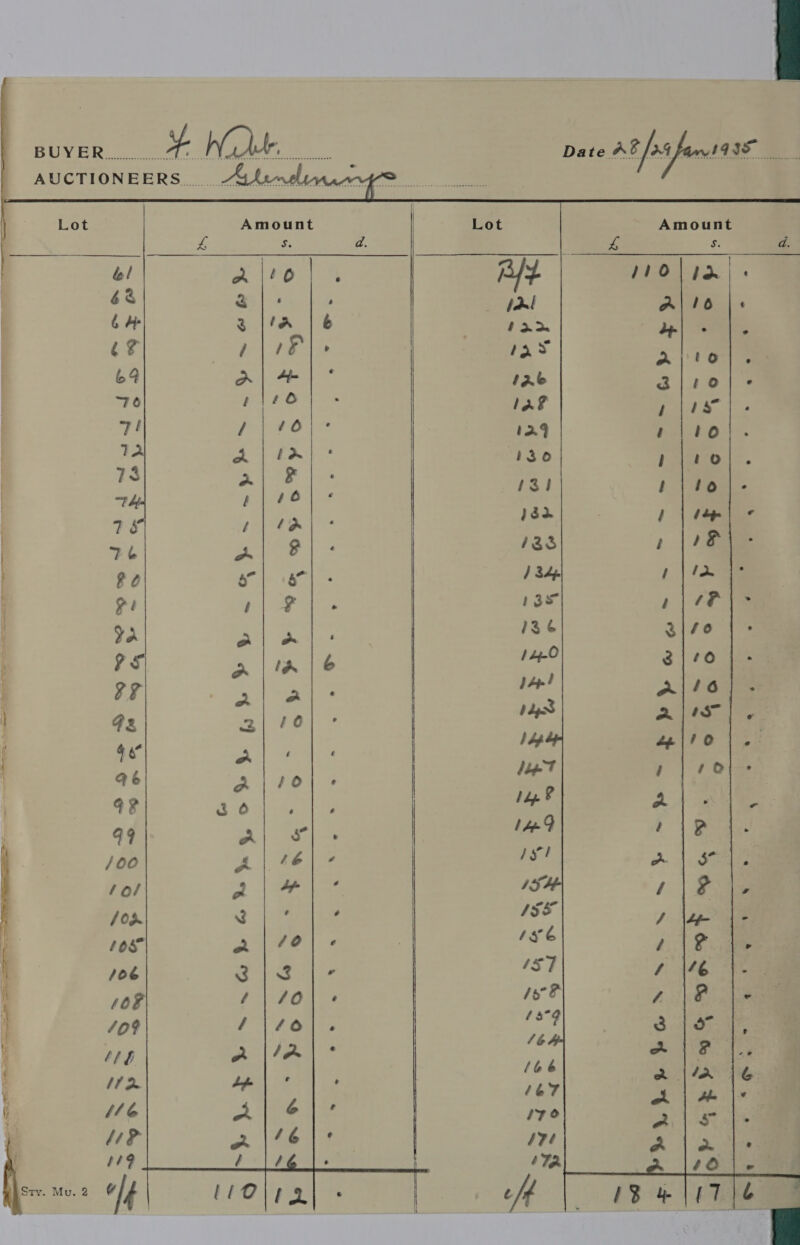 BUYER
AUCTIONEERS Glendinings
Date 28/29 Jan 1935
Lot Amount Lot Amount
£ s. d. £ s. d.
61 2 10 . B/f 110 12 .
62 2 . . 121 2 10 .
64 3 12 6 122 4 . .
68 1 18 . 125 2 10 .
69 2 4 . 126 3 10 .
70 1 10 . 128 1 15 .
71 1 10 . 129 1 10 .
72 2 12 . 130 1 10 .
73 2 8 . 131 1 10 .
74 1 10 . 132 1 14 .
75 1 12 . 133 1 18 .
76 2 8 . 134 1 12 .
80 5 5 . 135 1 18 .
81 1 8 . 136 3 10 .
82 2 2 . 140 3 10 .
85 2 12 6 141 2 16 .
88 2 2 . 143 2 15 .
92 3 10 . 144 4 10 .
95 2 . . 147 1 10 .
96 2 10 . 148 2 . .
98 30 . . 149 1 8 .
99 2 5 . 151 2 5 .
100 2 16 . 154 1 8 .
101 2 4 . 155 1 4 .
102 3 . . 156 1 8 .
105 2 10 . 157 1 16 .
106 3 3 . 158 1 8 .
108 1 10 . 159 3 5 .
109 1 10 . 164 2 8 .
2 12 . 166 2 12 6
112 4 . . 167 2 4 .
116 2 6 . 170 2 5 .
118 2 16 . 171 2 2 .
119 1 16 . 172 2 10 .
Sty. Mu. 2 c/f 110 12 . c/f 184 17 6